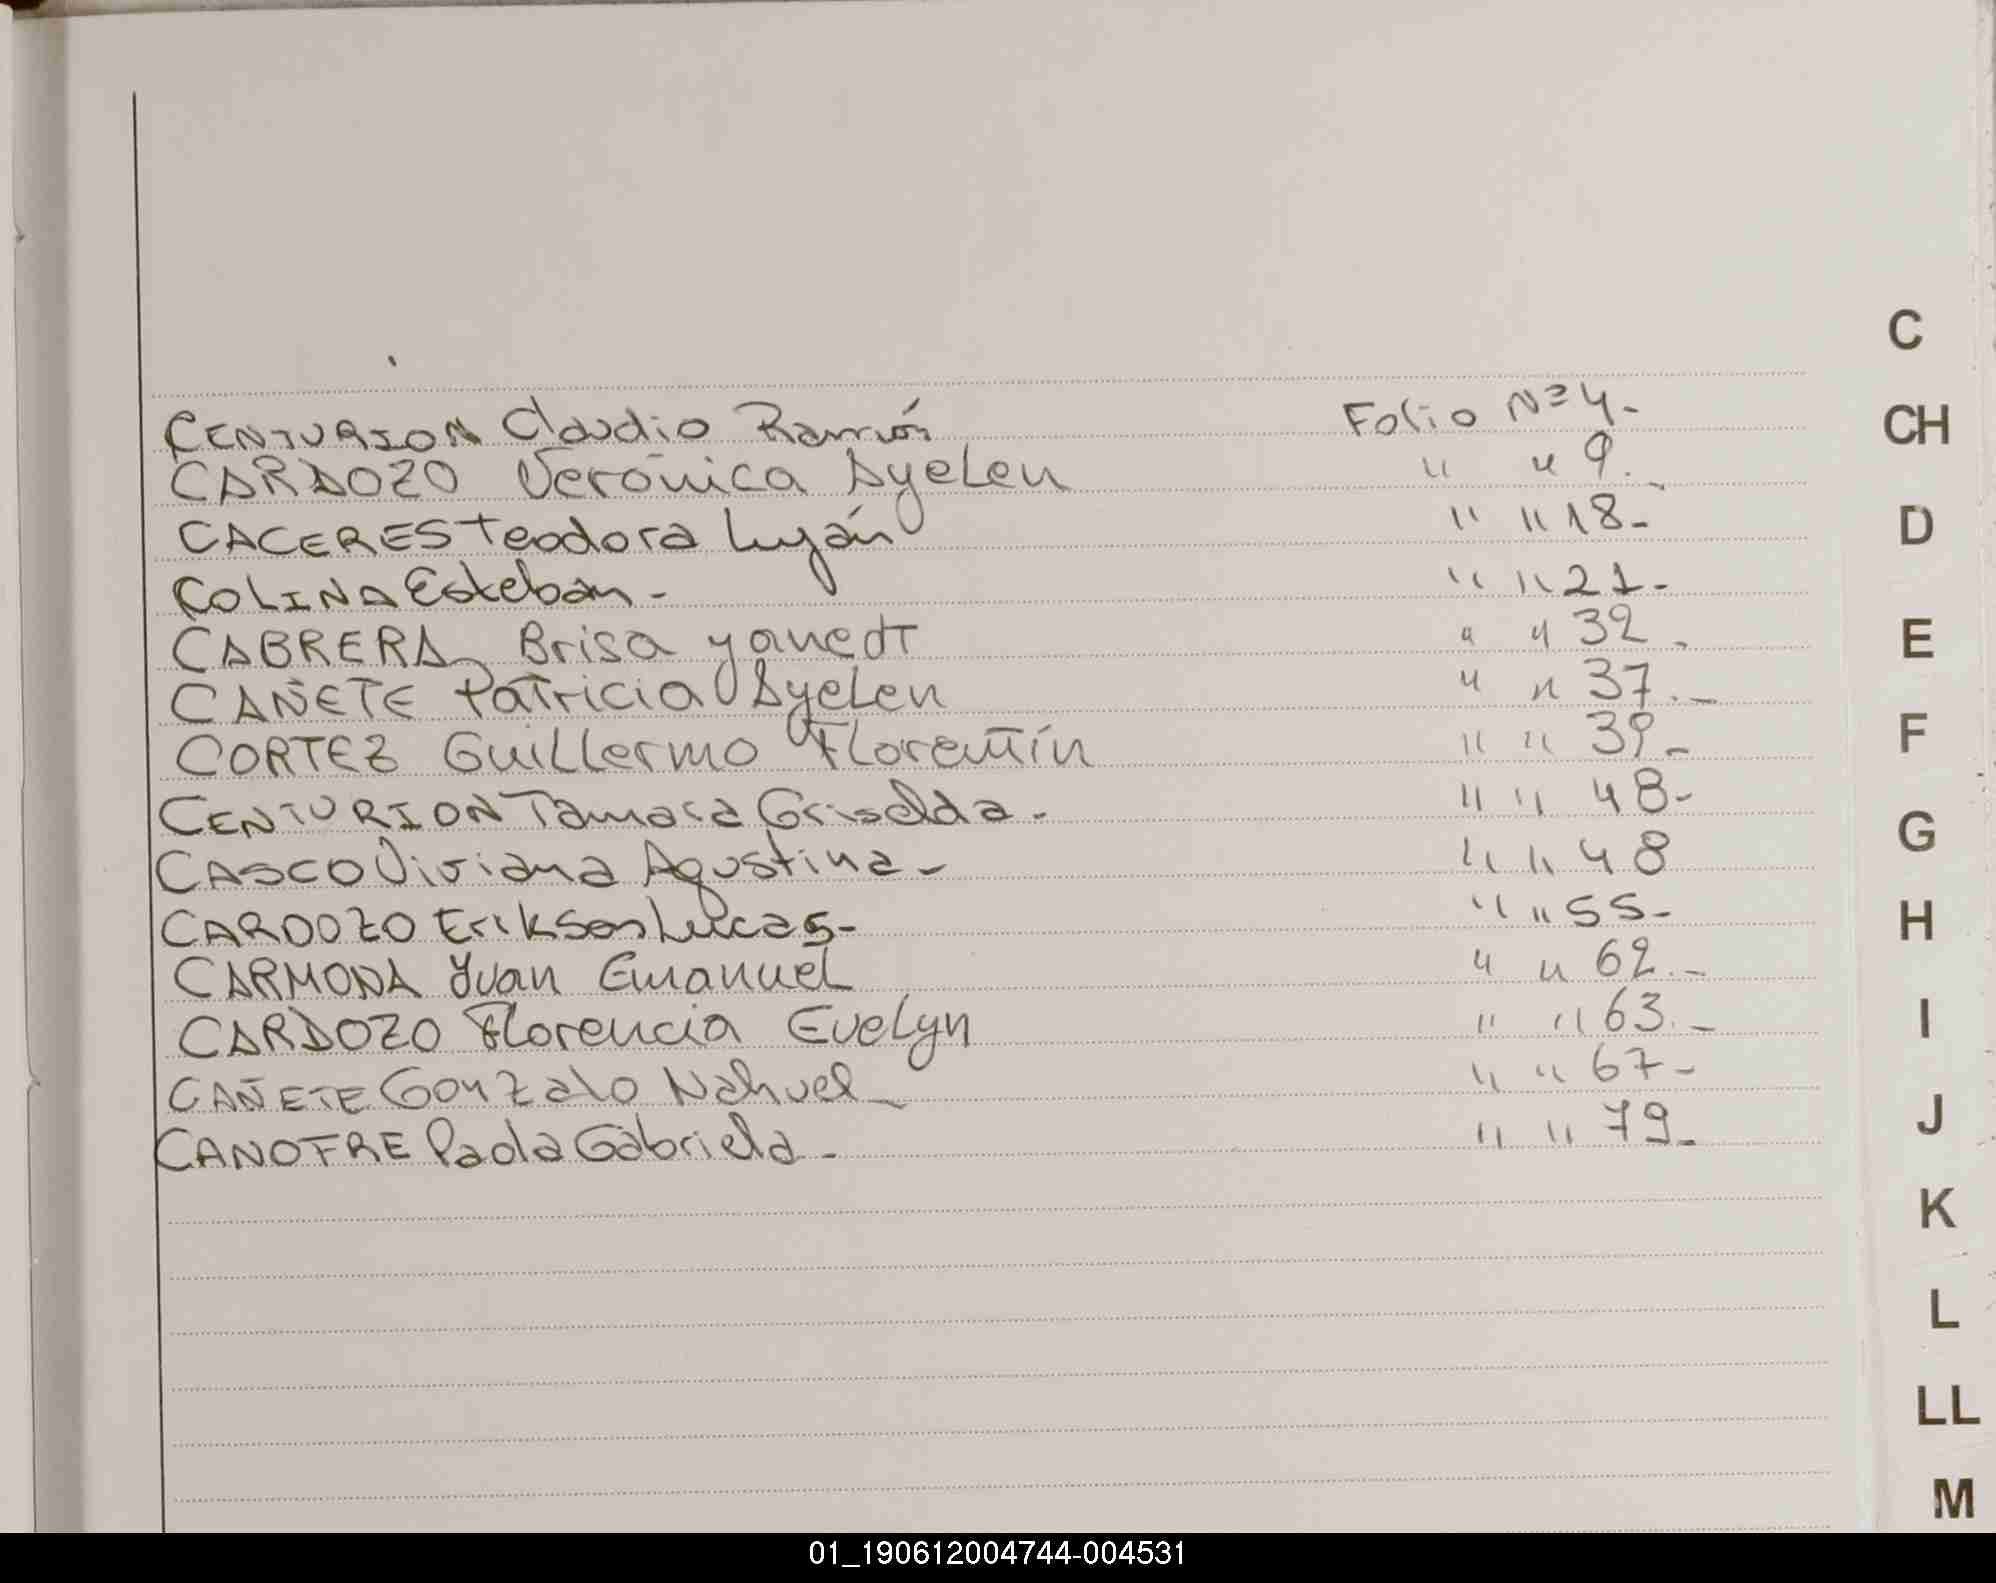 CENTURION Claudio Ramón Folio Nº 4.-
CARDOZO Verónica Ayelen " " 9.
CACERES Teodora Luján " " 18-
COLINA Esteban.- " " 21-
CABRERA Brisa yanedt " " 32.-
CAÑETE Patricia Ayelen " " 37.-
CORTEZ Guillermo Florentín " " 39-
CENTURION Tamara Griselda.- " " 48-
CASCO Viviana Agustina- " " 48
CARDOZO Erikson Lucas- " " 55-
CARMONA Yvan Emanuel " " 62.-
CARDOZO Florencia Evelyn " " 63.-
CAÑETE Gonzalo Nahuel- " " 67-
CANOFRE Paola Gabriela.- " " 79-
C
CH
D
E
F
G
H
I
J
K
L
LL
M
01_190612004744-004531